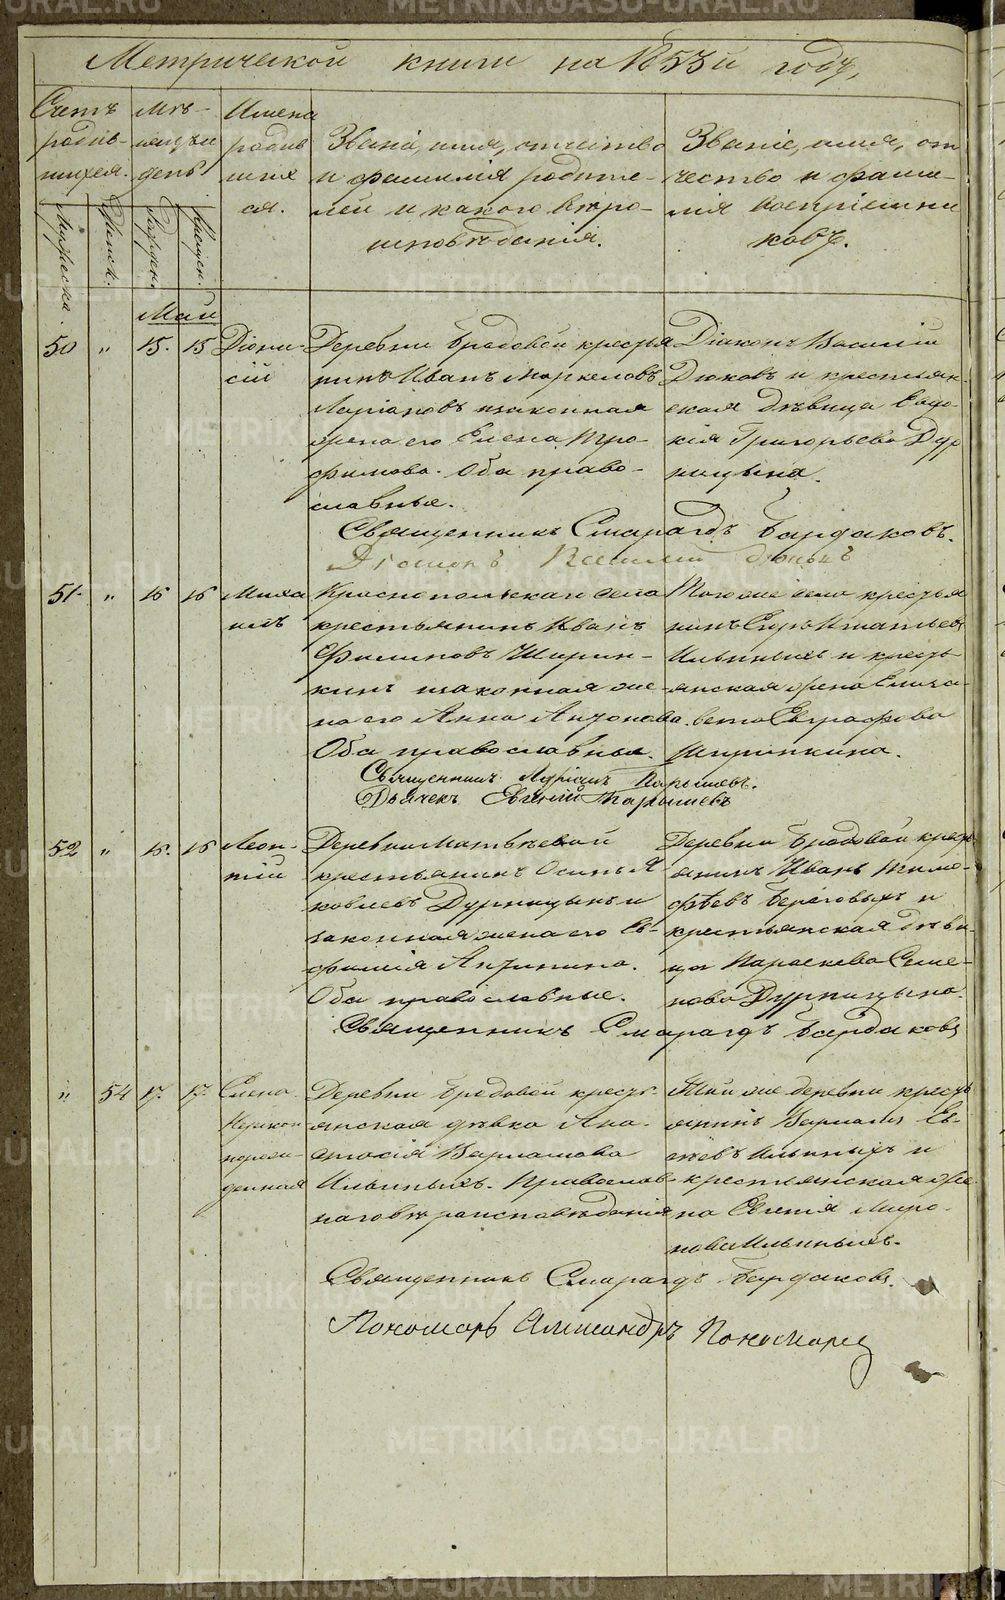 Метрической книги на 1853й годъ,
Счетъ родив-шихся.
Мѣ-сяцъ и день
Имена родив шихся.
Званіе, имя, отчество и фамилія родите-лей и какого вѣро-исповѣданія.
Званіе, имя, от чество и фами-лія воспріемни ковъ.
Мужеска.
Женск.
Рожден.
Крещен.
Май
50 " 15. 15 Діони-сій
Деревни Бродовой крестья
нинъ Иванъ Маркеловъ
Ларіоновъ изаконная
жена его Елена Тро-
фимова. Оба право-
славные.
Діаконъ Василій
Дюковъ и крестьян-
ская дѣвица
Григорьева Дур
ницына.
Священникъ Смарагдъ Бардаковъ.
Діаконъ Василій Дюковъ
51. " 15 16 Миха илъ
Краснопольскаго села
крестьянинъ Иванъ
Филиповъ Ширин-
кинъ изаконная же-
на его Анна Антонова.
Оба православные.
Того же села крестья
нинъ Егоръ Игнатьевъ
Ильиныхъ и кресть
янская жена Елиза-
вета Евграфова
Ширинкина.
Священникъ Адріанъ Парышевъ.
Дьячекъ Евгеній Парышевъ
52 " 15. 16 Леон-тій
Деревни Матвѣевой
крестьянинъ Осипъ Я
ковлевъ Дурницынъ и
законная жена его Ев-
фимія Антипина.
Оба православные.
Деревни Бродовой кресть
янинъ Иванъ Тимо-
фѣевъ Береговыхъ и
крестьянская дѣви-
ца Параскева Семе-
нова Дурницына.
Священникъ Смарагдъ Бардаковъ
" 54 17. 17. Елена
Незакон
норож-
денная
Деревни Бродовой кресть-
янская дѣвка Ана-
стасія Варламова
Ильиныхъ. Православ-
наго вѣроисповѣданія
Той же деревни кресть
янинъ Варламъ Ев-
сѣевъ Ильиныхъ и
крестьянская же
на Евгенія Миро-
нова Ильиныхъ.
Священникъ Смарагдъ Бардаковъ.
Пономарь Александръ Пономаревъ
METRIKI.GASO-URAL.RU